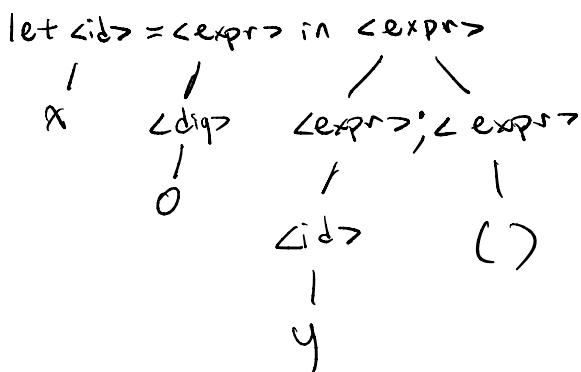 let <id> = <expr> in <expr>
x <dig> <expr> ; <expr>
0 <id> ( )
y